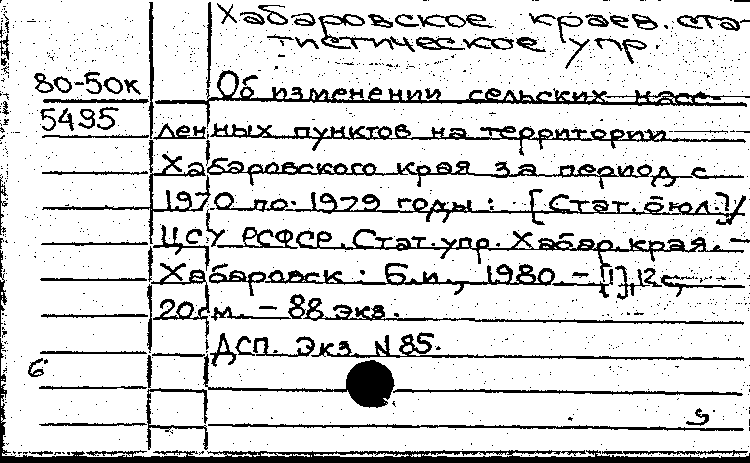 Хабаровское краев. ста-
тистическое упр.
80-50к Об изменении сельских насе-
5495 ленных пунктов на территории
Хабаровского края за период с
1970 по 1979 годы : [Стат. бюл.]/
ЦСУ РСФСР. Стат. упр. Хабар. края. –
Хабаровск : Б.и., 1980. – [1], 12 с;
20см. – 88 экз.
ДСП. Экз. N 85.
б